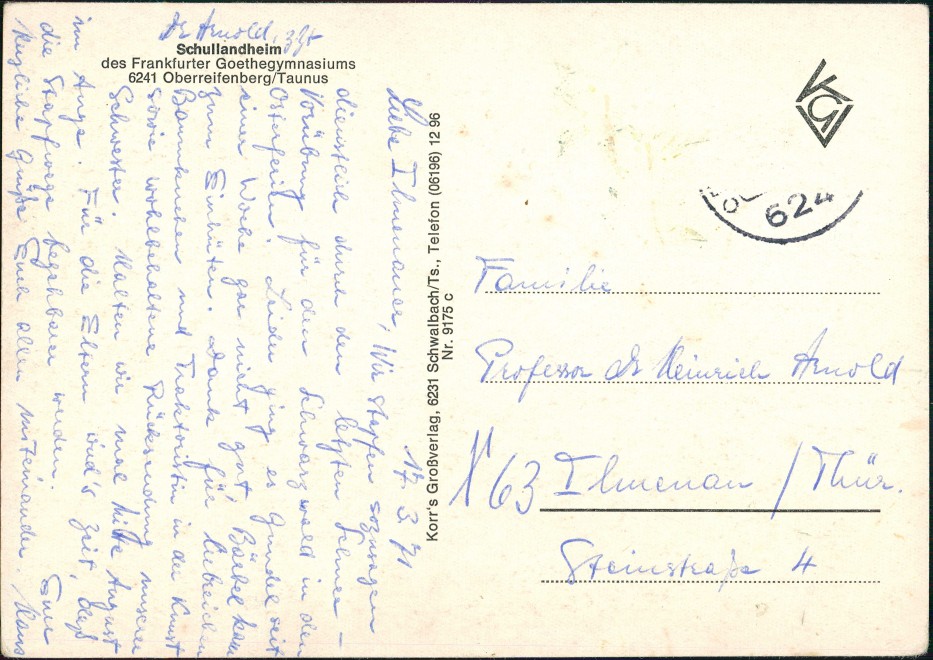 Dr Arnold, zzt
Schullandheim
des Frankfurter Goethegymnasiums
6241 Oberreifenberg/Taunus
17. 3. 71
Liebe Ilmenauer, Wir stapfen sozusagen
dienstlich durch den letzten Schnee –
Vorübung für den Schwarzwald in den
Osterferien. Leider ging es Gundel seit
einer Woche gar nicht gut, Bärbel kam
zum Einhüten. Danke für liebreichen
Baumkuchen und Traktoristin in der Kunst
sowie wohlbehaltene Rücksendung unserer
Schwester. Halten wir mal Mitte August
im Auge. Für die Eltern wird's Zeit, daß
die Stapfwege begehbarer werden.
Herzliche Grüße Euch allen miteinander. Euer
Hans
Korr's Großverlag, 6231 Schwalbach/Ts., Telefon (06196) 12 96
Nr. 9175 c
624
Familie
Professor Dr Heinrich Arnold
X 63 Ilmenau / Thür.
Steinstraße 4